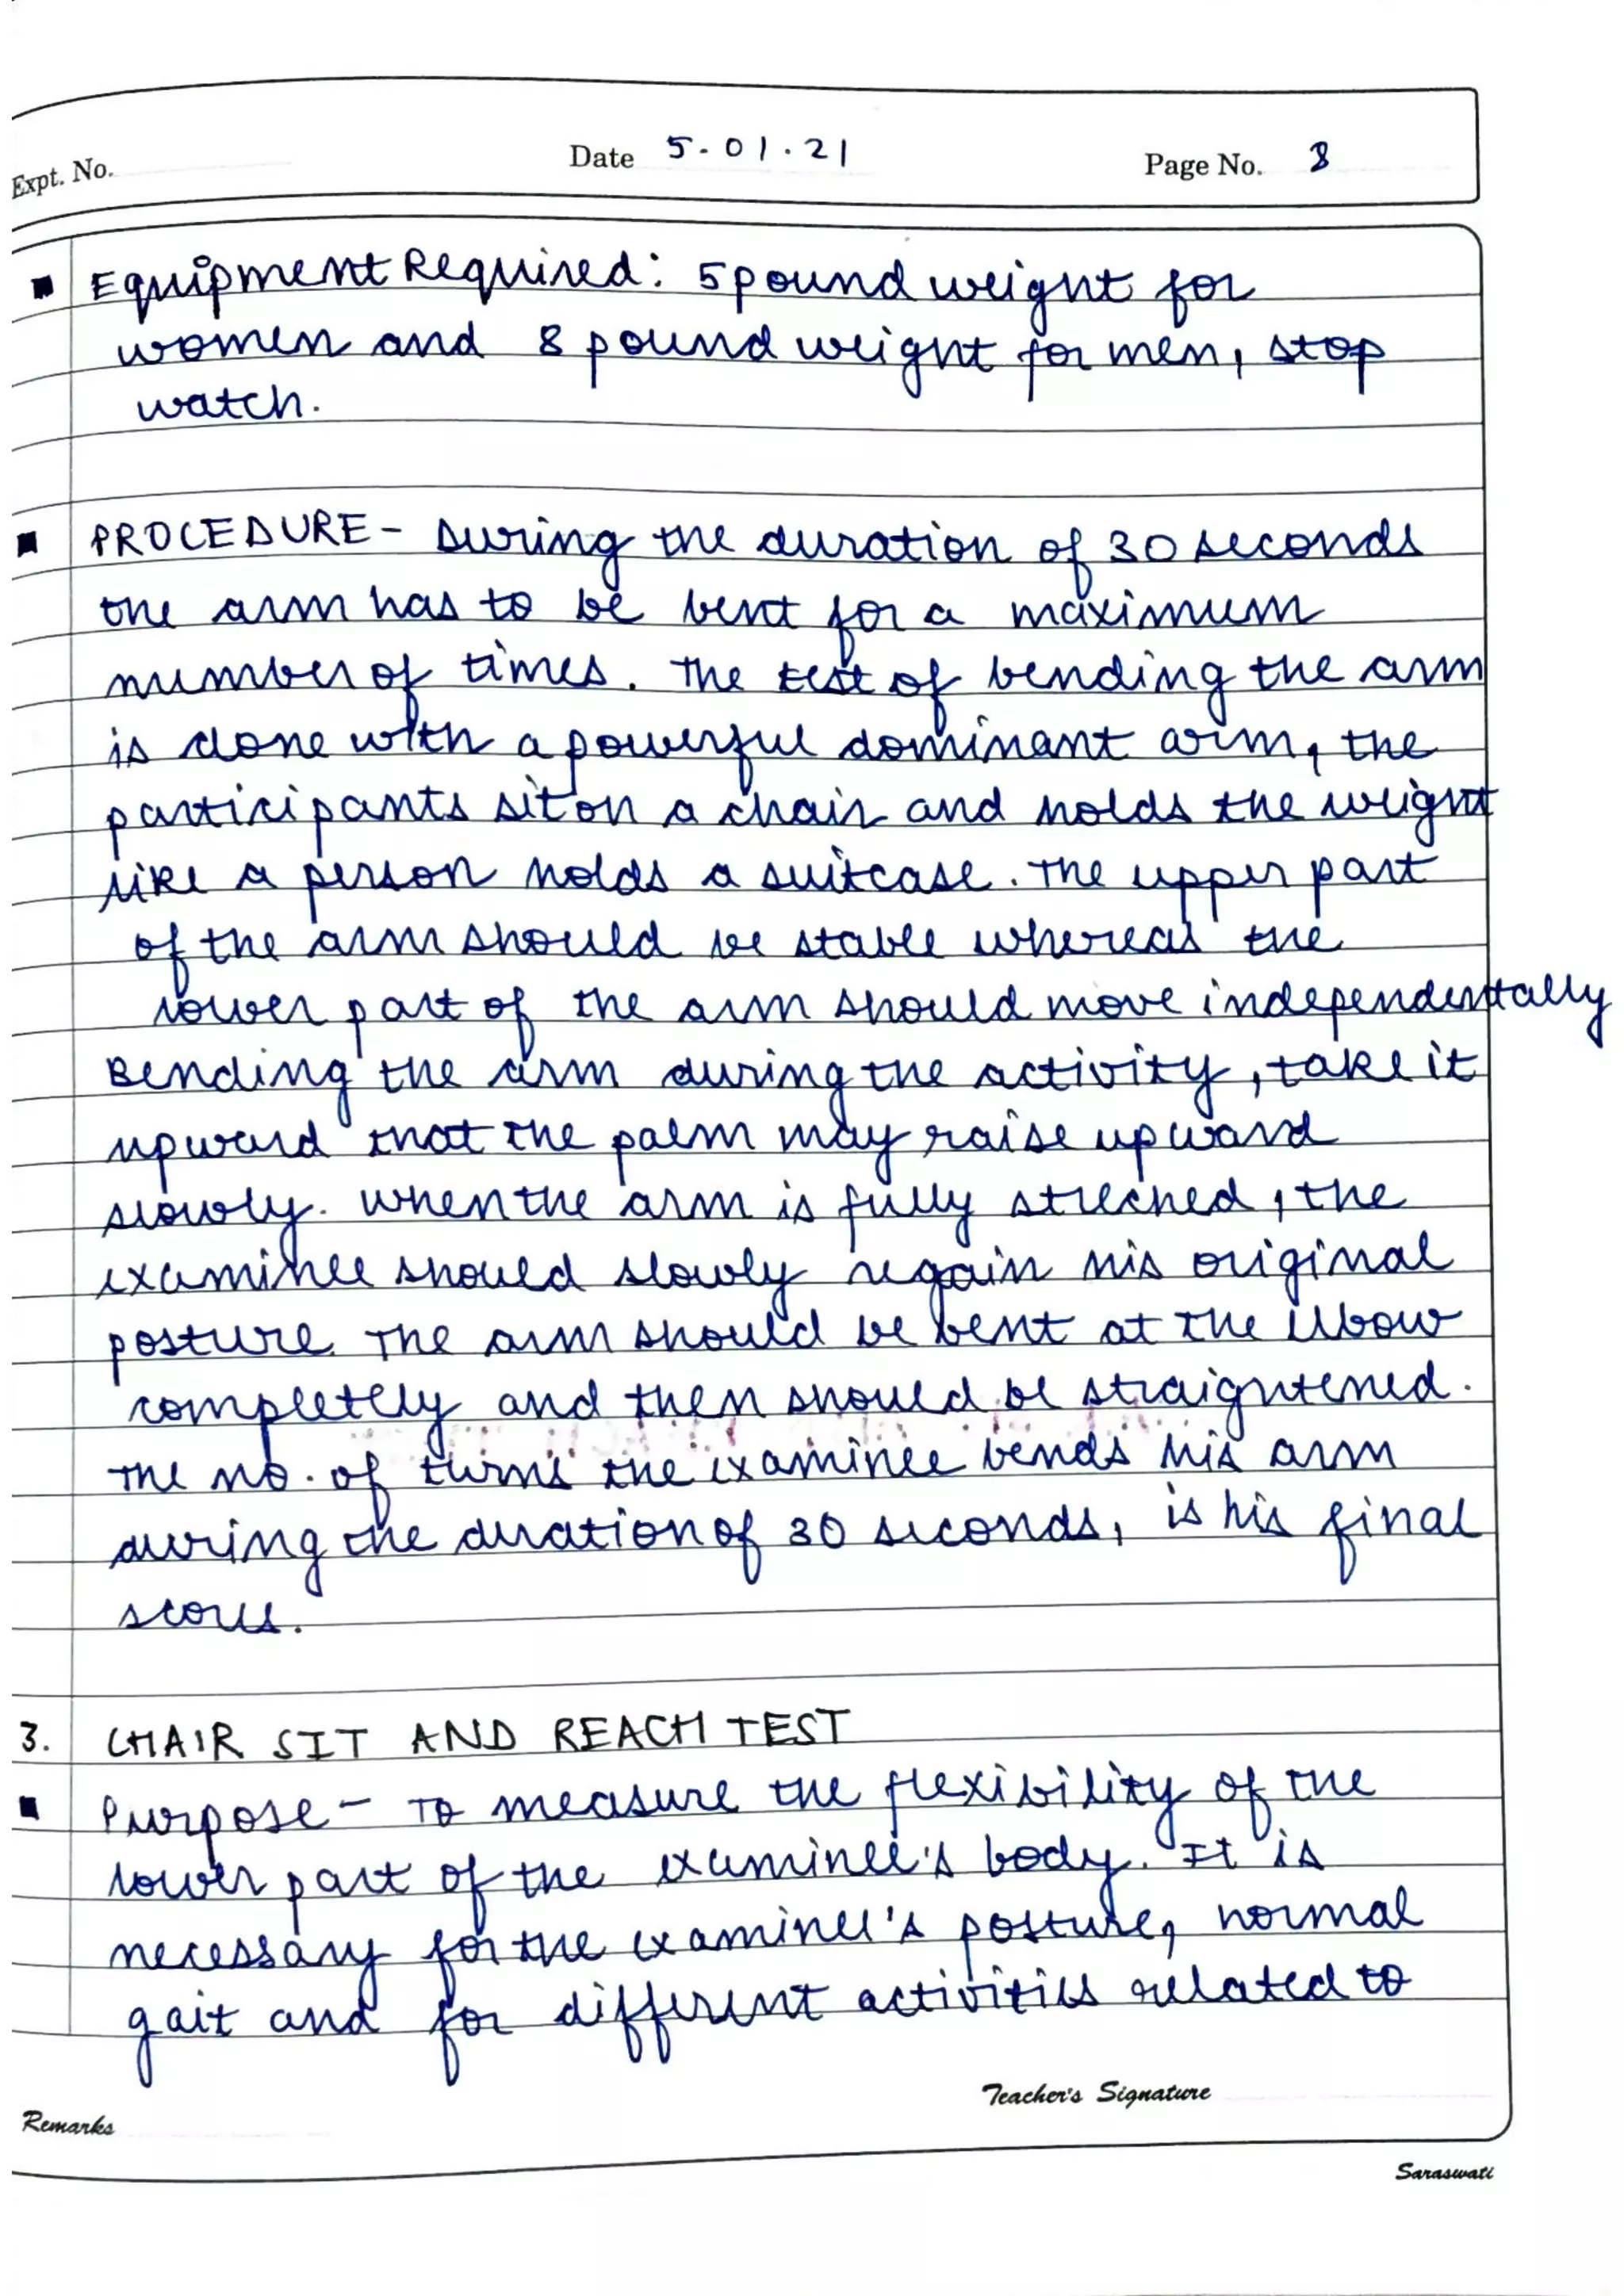 Expt. No.
Date 5.01.21
Page No. 8
Equipment Required: 5 pound weight for
women and 8 pound weight for men, stop
watch.
PROCEDURE - During the duration of 30 seconds
the arm has to be bent for a maximum
number of times. The test of bending the arm
is done with a powerful dominant arm, the
participants sit on a chair and holds the weight
like a person holds a suitcase. The upper part
of the arm should be stable whereas the
lower part of the arm should move independentally
Bending the arm during the activity, take it
upward that the palm may raise upward
slowly. When the arm is fully streched, the
examinee should slowly regain his original
posture. The arm should be bent at the elbow
completely and then should be straightened.
The no. of turns the examinee bends his arm
during the duration of 30 seconds, is his final
scores.
3. CHAIR SIT AND REACH TEST
Purpose - To measure the flexibility of the
lower part of the examinee's body. It is
necessary for the examinee's posture, normal
gait and for different activities related to
Teacher's Signature
Remarks
Saraswati